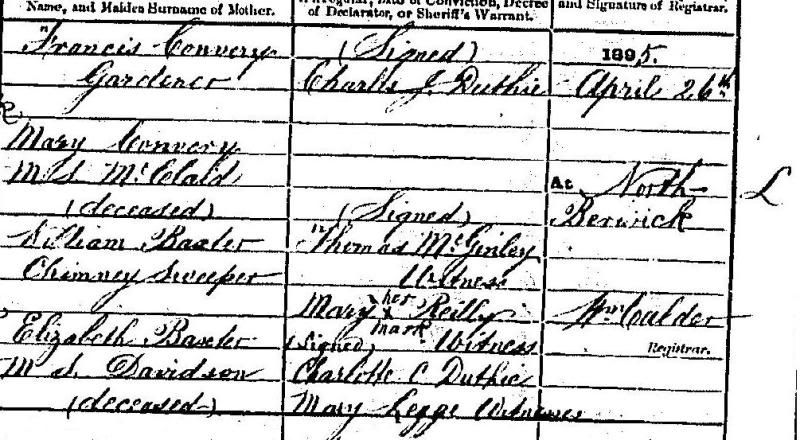 Name, and Maiden Surname of Mother.
or Irregular, Date of Conviction, Decree
of Declarator, or Sheriff's Warrant.
and Signature of Registrar.
Francis Convery
Gardener
Mary Convery
M S McClald
(deceased)
William Baxter
Chimney Sweeper
Elizabeth Baxter
M S Davidson
(deceased)
(Signed)
Charles J. Duthie
(Signed)
Thomas McGinley
Witness
Mary her x mark Reilly
Witness
(Signed)
Charlotte C Duthie
Mary Legge Witnesses
1895.
April 26th
At North
Berwick
Wm Calder
Registrar.
L